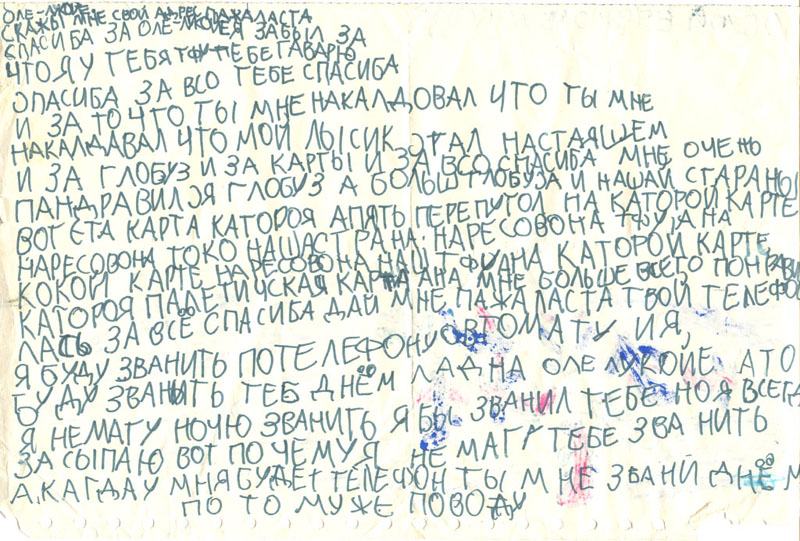 ОЛЕ-ЛУКОЙЕ.
СКАЖЫ МНЕ СВОЙ АДРЕС ПАЖАЛАСТА
СПАСИБА ЗА ОЛЕ-ЛУКОЙЕ Я ЗАБЫЛ ЗА
ЧТО Я У ТЕБЯ ТФУ ТЕБЕ ГАВАРЮ
СПАСИБА ЗА ВСО ТЕБЕ СПАСИБА
И ЗА ТО ЧТО ТЫ МНЕ НАКАЛДОВАЛ ЧТО ТЫ МНЕ
НАКАЛДАВАЛ ЧТО МОЙ ЛЫСИК СТАЛ НАСТАЯЩЕМ
И ЗА ГЛОБУЗ И ЗА КАРТЫ И ЗА ВСО СПАСИБА МНЕ ОЧЕНЬ
ПАНДРАВИЛСЯ ГЛОБУЗ А БОЛЬШ ГЛОБУЗА И НАШАЙ СТАРАНЫ
ВОТ ЄТА КАРТА КАТОРОЯ АПЯТЬ ПЕРЕПУТОЛ НА КАТОРОЙ КАРТЕ
НАРЕСОВОНА ТОКО НАША СТРАНА. НАРЕСОВОНА ТФУ, А НА
КОКОЙ КАРТЕ НАРЕСОВОНА НАШ ТФУ НА КАТОРОЙ КАРТЕ
КАТОРОЯ ПАЛЕТИЧСКАЯ КАРТА АНА МНЕ БОЛЬШЕ ВСЕГО ПОНРАВИ
ЛАСЬ ЗА ВСЁ СПАСИБА ДАЙ МНЕ ПАЖАЛАСТА ТВОЙ ТЕЛЕФОН
Я БУДУ ЗВАНИТЬ ПО ТЕЛЕФОНУ ОВТОМАТУ И Я,
БУДУ ЗВАНЫТЬ ТЕБ ДНЁМ ЛАДНА ОЛЕ ЛУКОЙЕ А ТО
Я НЕ МАГУ НОЧЮ ЗВАНИТЬ Я БЫ ЗВАНИЛ ТЕБЕ НО Я ВСЕГДА
ЗАСЫПАЮ ВОТ ПОЧЕМУ Я НЕ МАГУ ТЕБЕ ЗВАНИТЬ
А, КАГДА У МНЯ БУДЕТ ТЕЛЕФОН ТЫ МНЕ ЗВАНИ ДНЁМ
ПО ТОМУ ЖЕ ПОВОДУ